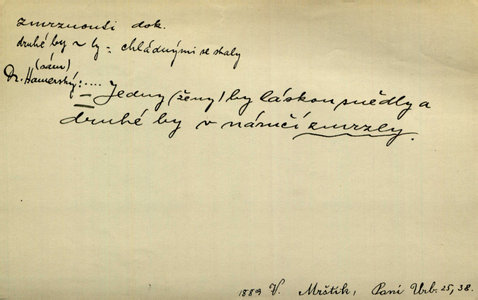 zmrznouti dok.
druhé by ~ ly = chládnými se staly
(sám)
Dr. Hamerský: ....
= Jedny (ženy) by láskou snědly a
druhé by v náručí zmrzly.
1889 V. Mrštík, Paní Urb. 25, 38.